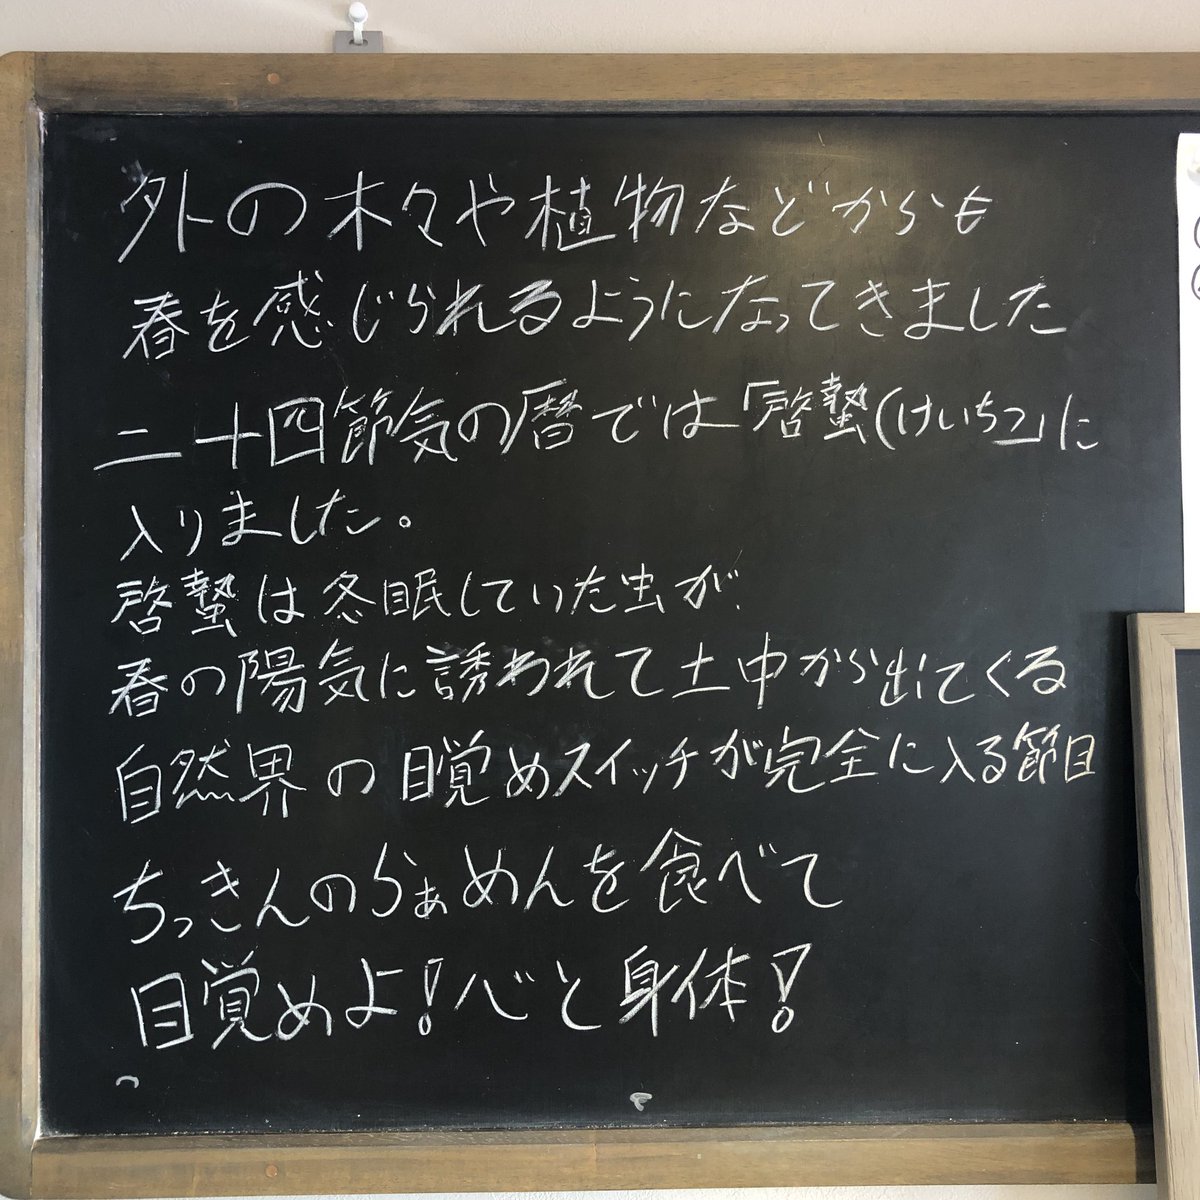 外の木々や植物などからも
春を感じられるようになってきました
二十四節気の暦では「啓蟄(けいちつ」に
入りました。
啓蟄は冬眠していた虫が、
春の陽気に誘われて土中から出てくる
自然界の目覚めスイッチが完全に入る節目
ちっきんのらぁめんを食べて
目覚めよ!心と身体!